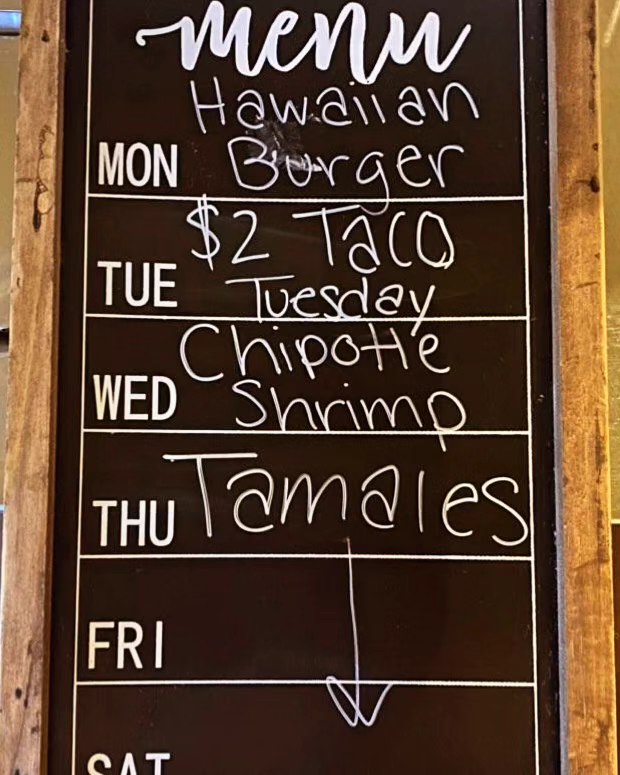 menu
Hawaiian
MON Burger
$2 Taco
TUE Tuesday
Chipotle
WED Shrimp
THU Tamales
FRI
SAT